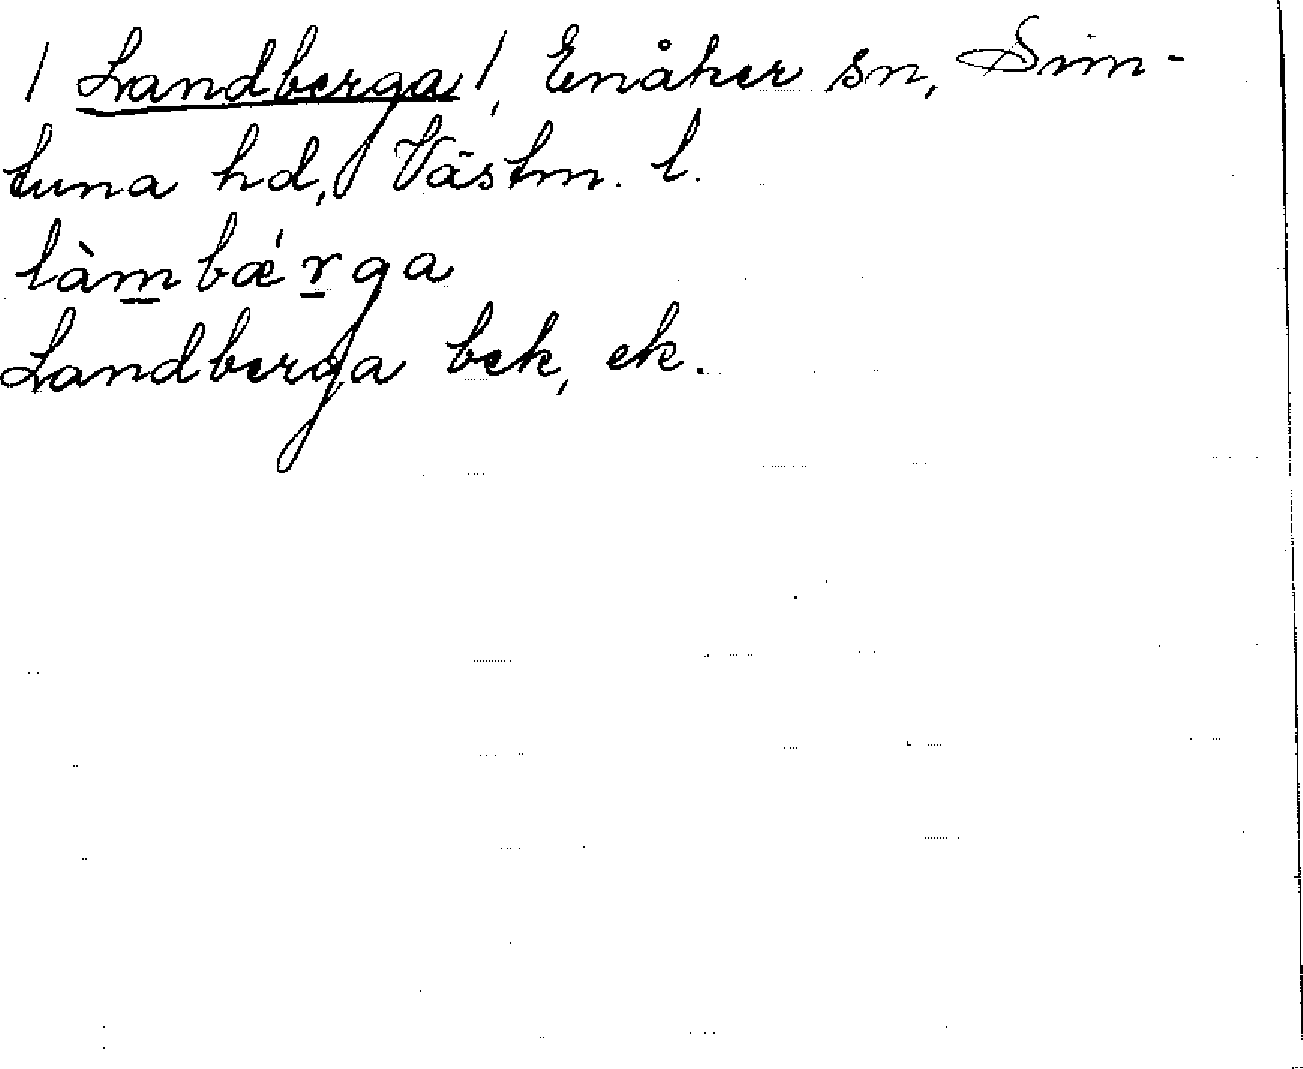 / Landberga /, Enåker sn, Sim-
tuna hd, Västm. l.
làmbǽrga
Landberga bek, ek.